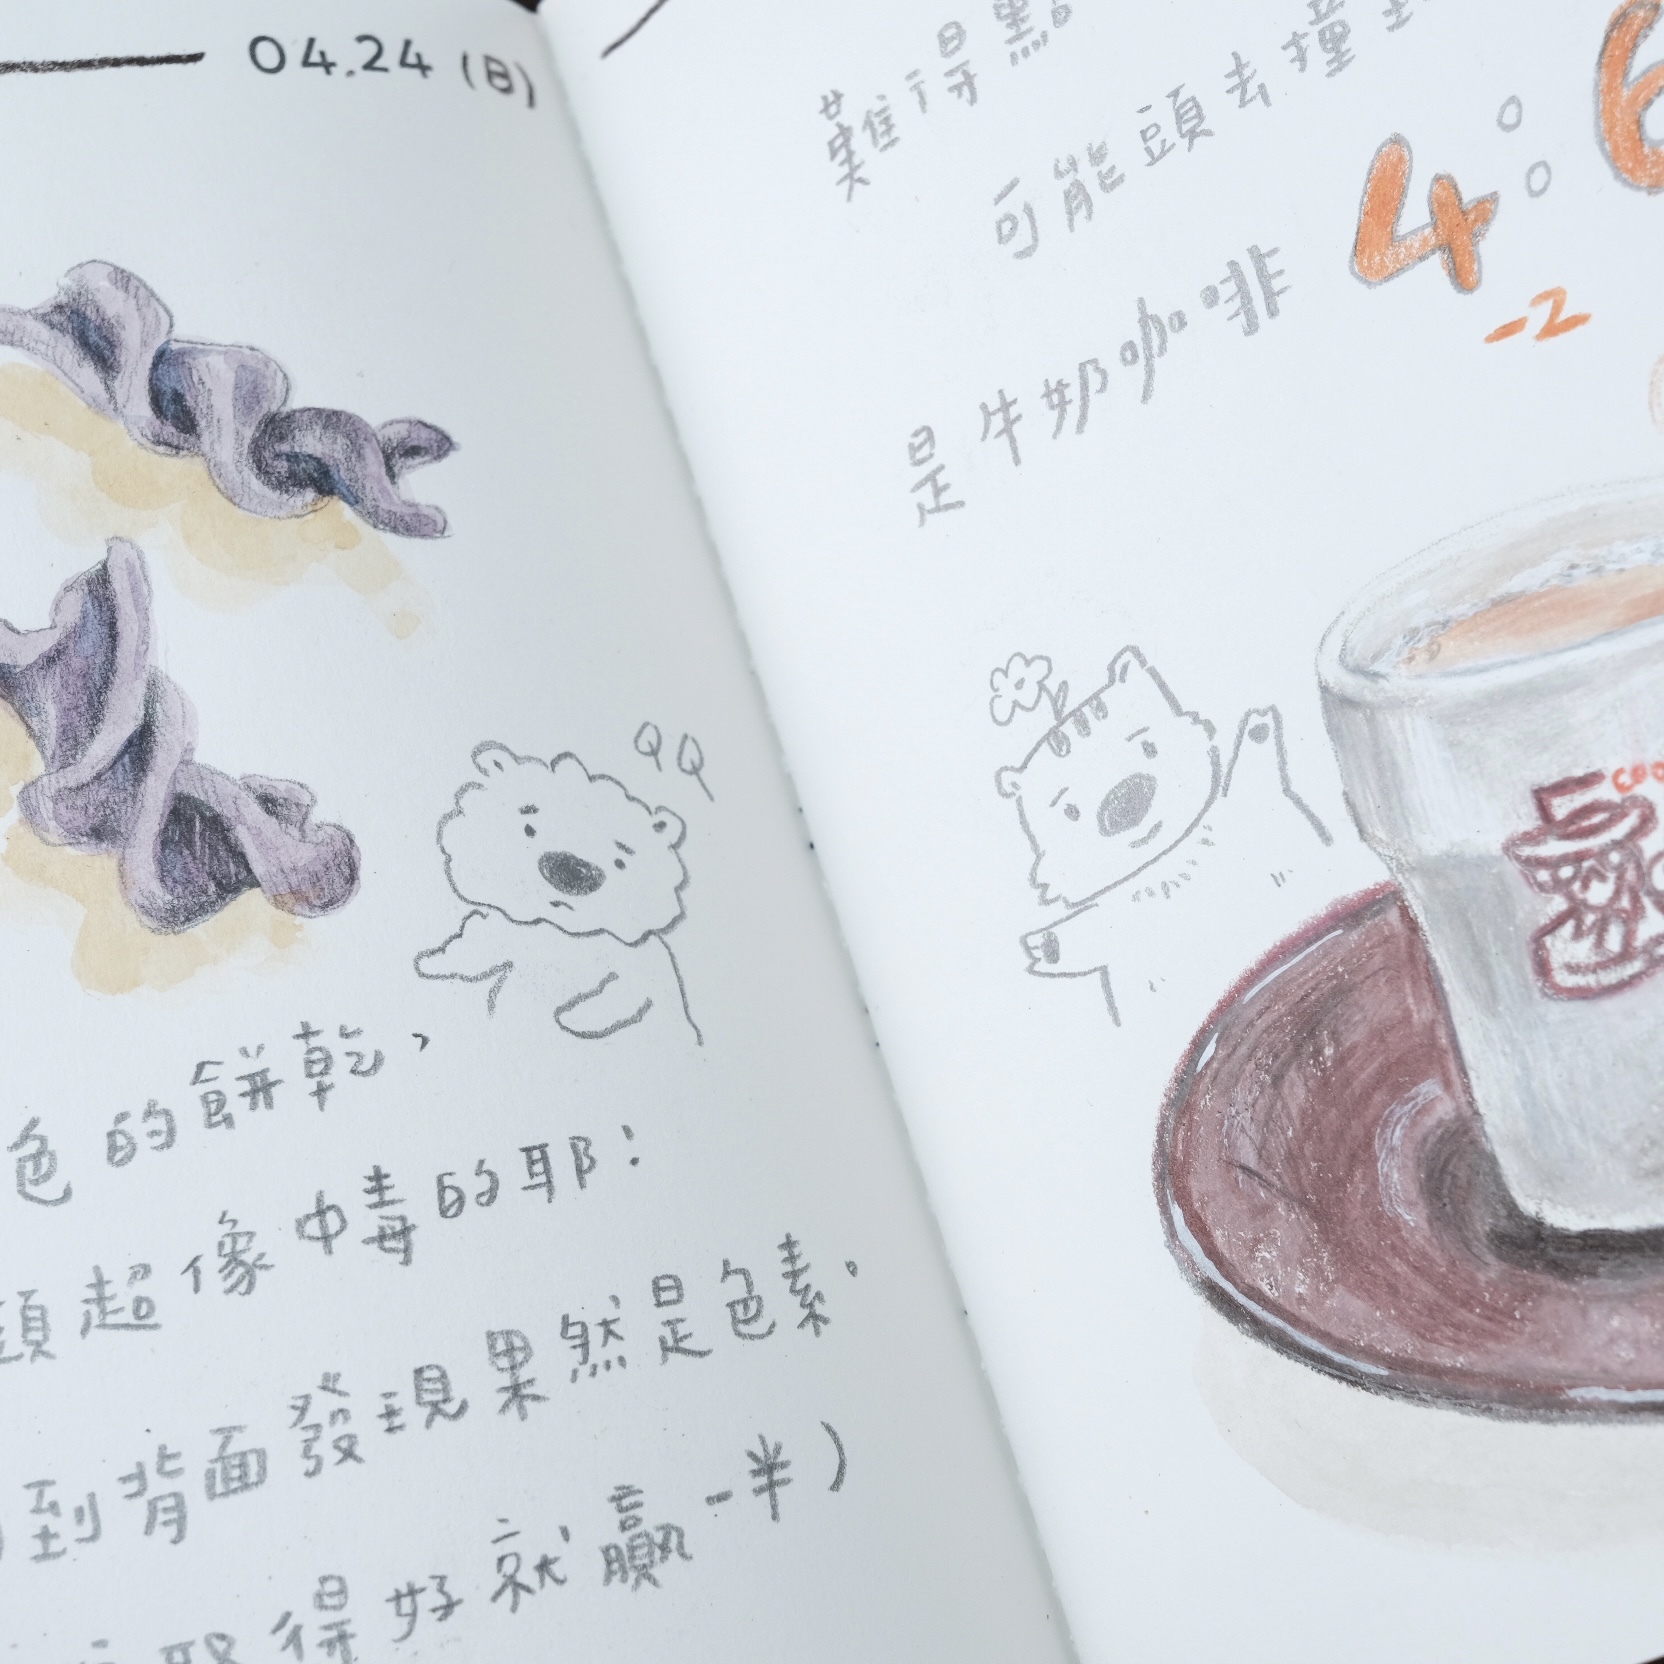 04.24 (日)
QQ
色的餅乾，
頭超像中毒的耶：
到背面發現果然是色素。
取得好就贏一半）
難得點
可能頭去撞到
4：6
-2
是牛奶咖啡